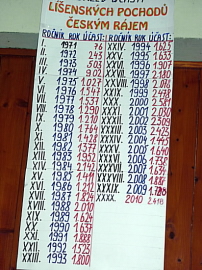 LÍŠENSKÝCH POCHODŮ
ČESKÝM RÁJEM
ROČNÍK ROK ÚČAST: ROČNÍK ROK ÚČAST:
I. 1971 76 XXIV. 1994 1.625
II. 1972 243 XXV. 1995 1.633
III. 1973 503 XXVI. 1996
IV. 1974 902 XXVII. 1997 2.180
V. 1975 1.027 XXVIII. 1998
VI. 1976 XXIX. 1999 2.478
VII. 1977 1.537 XXX. 2000 2.581
VIII. 1978 XXXI. 2001
IX. 1979 1.210 XXXII. 2002
X. 1980 1.764 XXXIII. 2003 2.423
XI. 1981 1.428 XXXIV. 2004 1.445
XII. 1982 1.377 XXXV. 2005 1.640
XIII. 1983 1.952 XXXVI. 2006 1.738
XIV. 1984 XXXVII. 2007
XV. 1985 1.441 XXXVIII. 2008
XVI. 1986 1.212 XXXIX. 2009
XVII. 1987 1.824 XXXX. 2010 2.418
XVIII. 1988 2.010
XIX. 1989 1.624
XX. 1990 1.637
XXI. 1991 1.888
XXII. 1992 1.525
XXIII. 1993 1.800